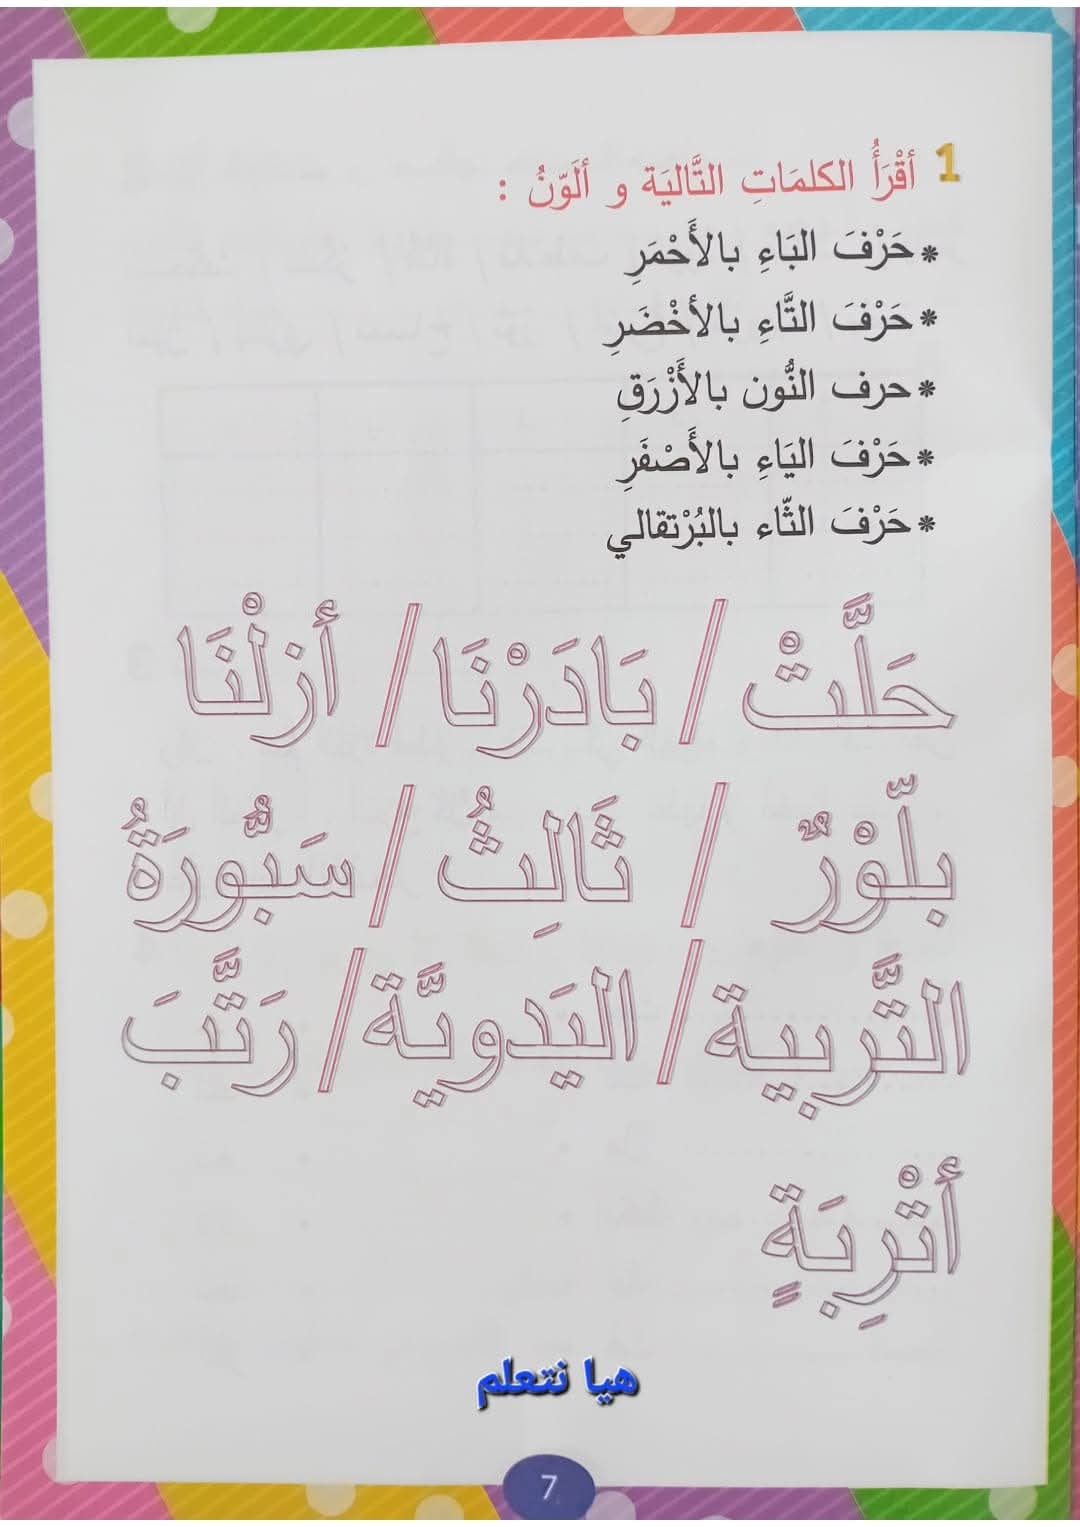 1 أقْرَأُ الكلمَاتِ التَّاليَة و ألَوّنُ :
* حَرْفَ البَاءِ بالأَحْمَرِ
* حَرْفَ التَّاءِ بالأخْضَرِ
* حرف النُّون بالأَزْرَقِ
* حَرْفَ اليَاءِ بالأَصْفَرِ
* حَرْفَ الثّاء بالبُرْتقالي
حَلَّتْ / بَادَرْنَا / أزلْنَا
بلّوْرٌ / ثَالِثُ / سَبُّورَةُ
التَّربية / اليَدويَّة / رَتَّبَ
أتْرِبَةٍ
هيا نتعلم
7